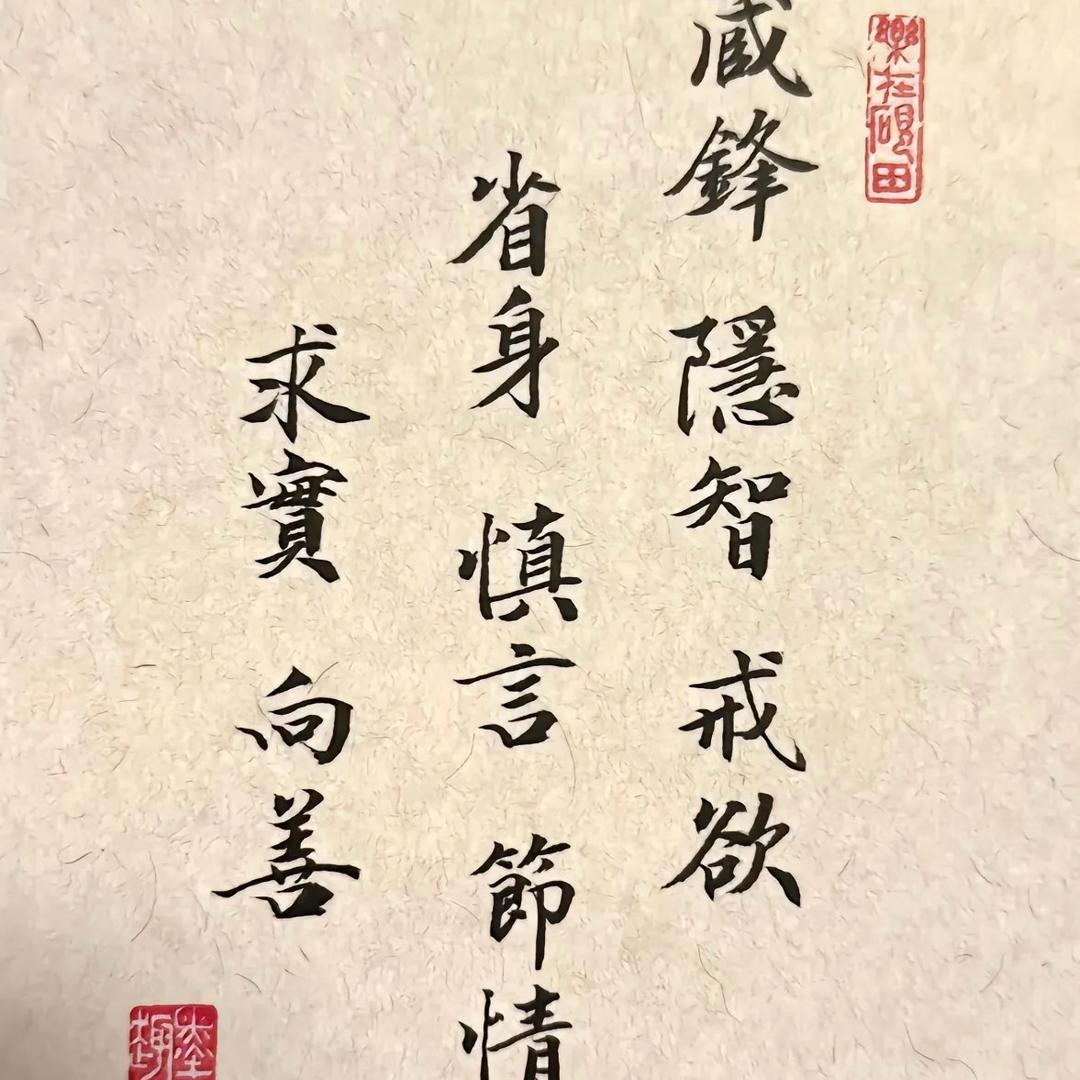 樂在硯田
藏鋒 隱智 戒欲
省身 慎言 節情
求實 向善